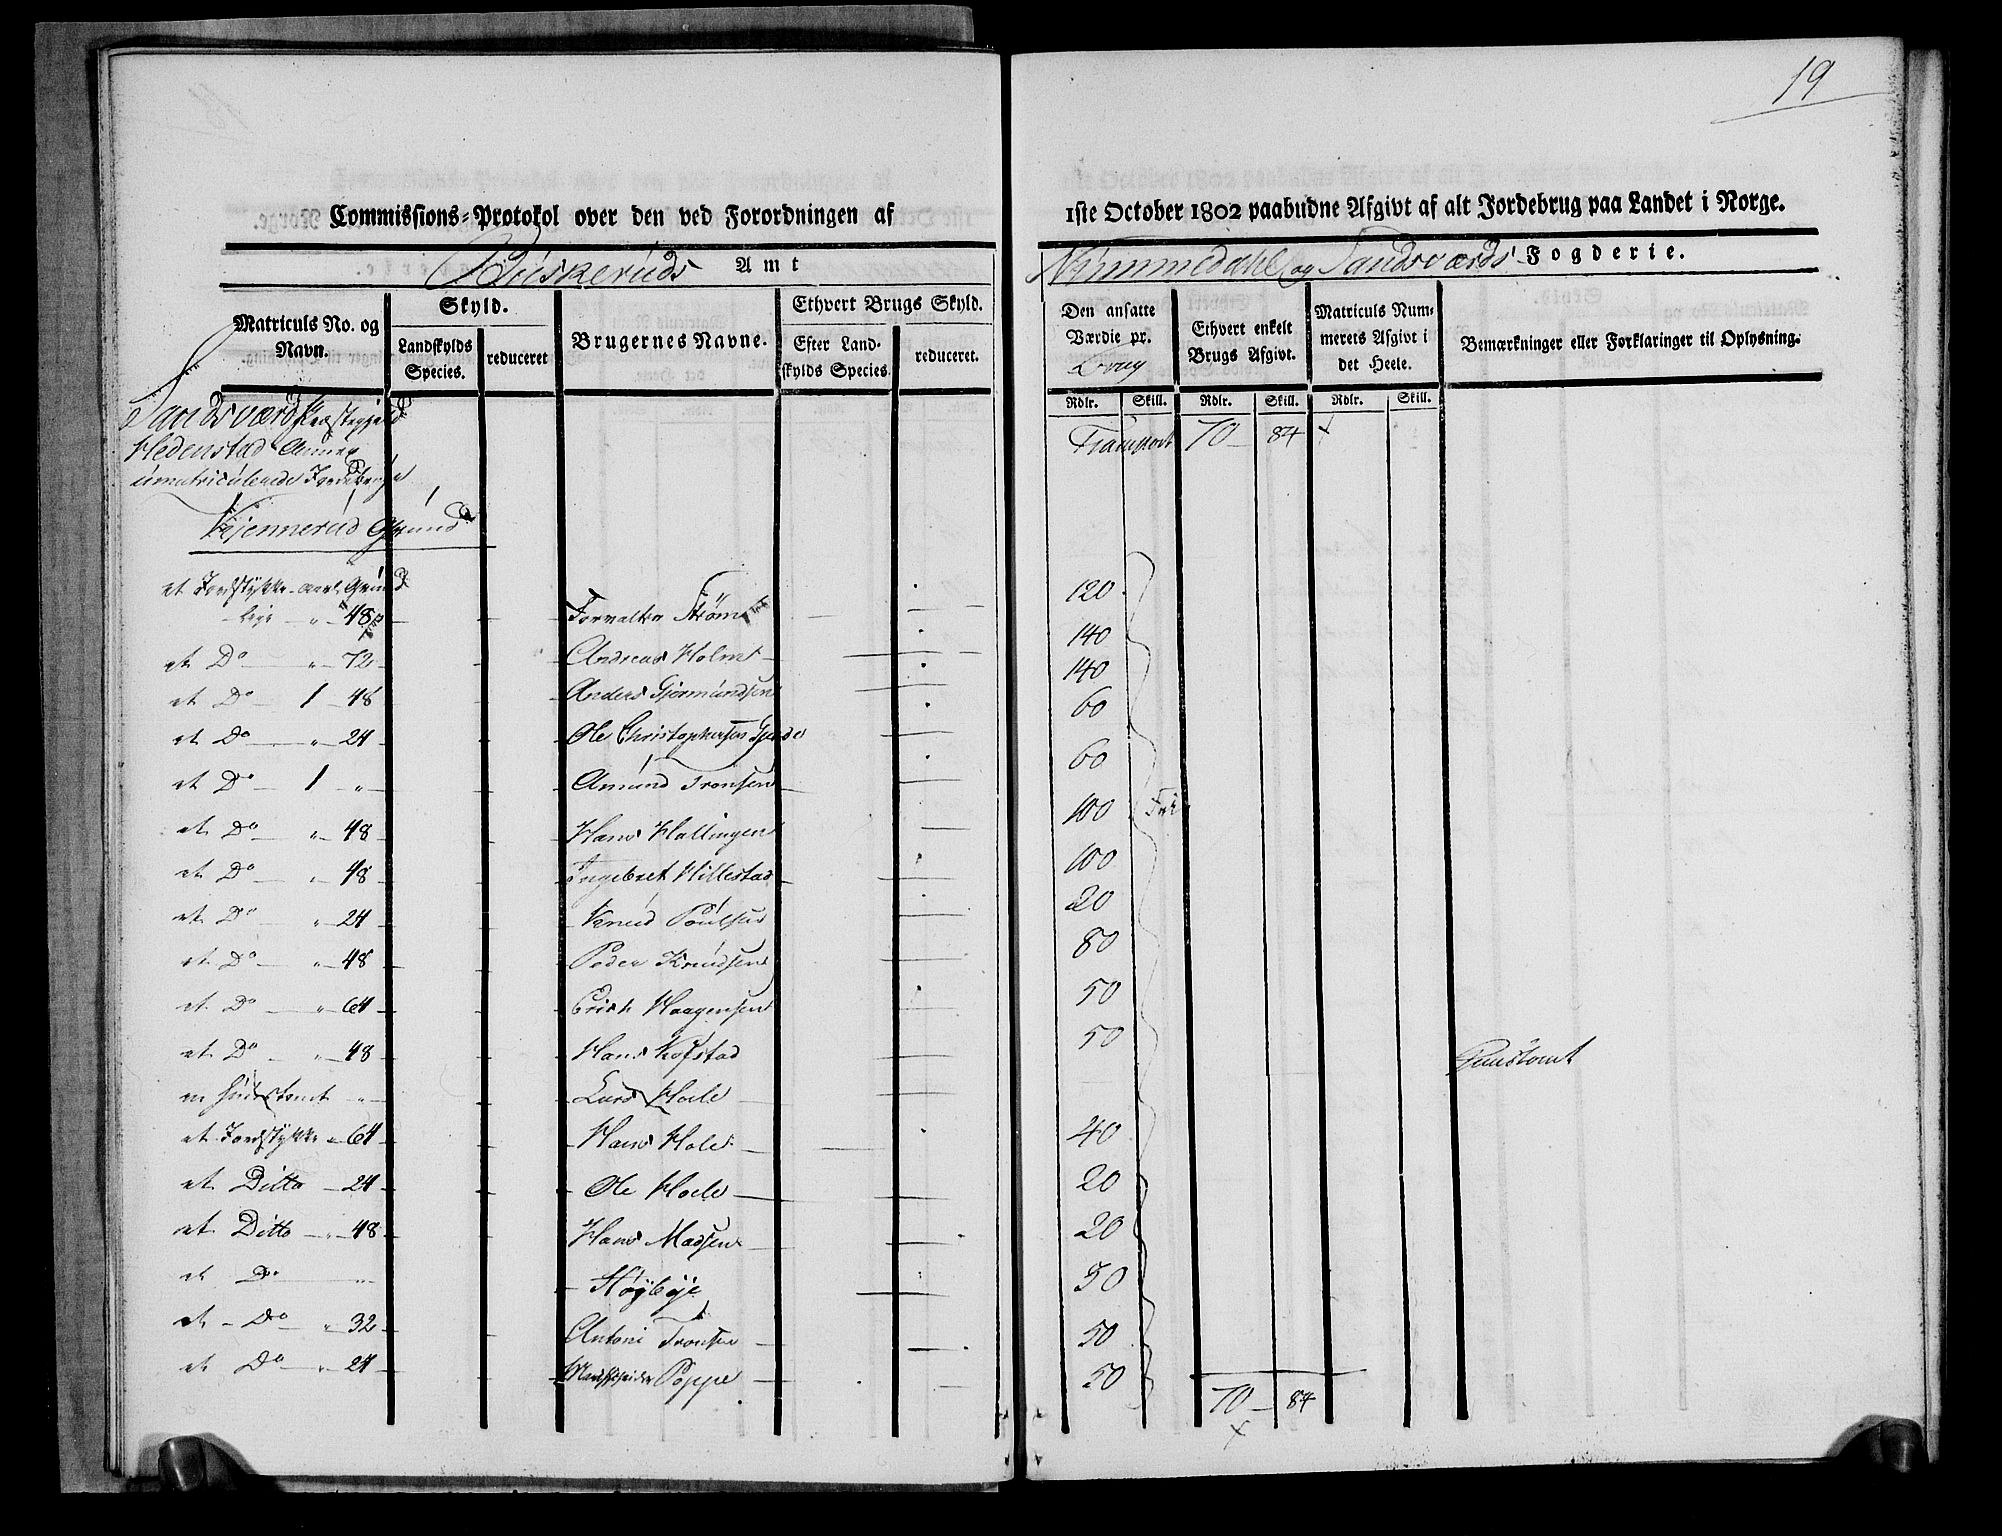 Commissions-Protokol over den ved Forordningen af
Buskeruds Amt
Matriculs No. og Navn.
Skyld.
Landskylds Species.
reduceret
Brugernes Navne.
Ethvert Brugs Skyld.
Efter Landskylds Species.
reduceret.
Sandsværds Præstegjeld
Hedenstad Annex
umatriculerede Jordbruge
Kjennerud Grund
et Jordstykke aarl. Grund
leje " 48 ß Forvalter Strøm
et Do " 72 Andreas Holm
et Do 1 48 Anders Gjermundsen
et Do " 24 Ole Christophersen
et Do 1 " Amund Tronsen
et Do " 48 Hans Hallingen
et Do " 48 Ingebret Hillestad
et Do " 24 Knud Poulsen
et Do " 48 Peder Knudsen
et Do " 64 Erich Haagensen
et Do " 48 Hans Kofstad
en Huustomt " Lars Hole
et Jordstykke " 64 Hans Hole
et Ditto 24 Ole Hole
et Ditto " 48 Hans Madsen
et Do " Høyböje
et Do " 32 Antoni Tronsen
et Do " 24 Markscheider Poppe
19
1ste October 1802 paabudne Afgivt af alt Jordebrug paa Landet i Norge.
Nummedahl og Sandsværds Fogderie.
Den ansatte Værdie pr. Brug
Ethvert enkelt Brugs Afgivt.
Matriculs Nummerets Afgivt i det Heele.
Bemærkninger eller Forklaringer til Oplysning.
Rdlr. Skill. Rdlr. Skill. Rdlr. Skill.
Transport 70 84
120
140
140
60
60
100 Fri
100
20
80
50
50
Huustomt
40
20
20
50
50
50
70 84